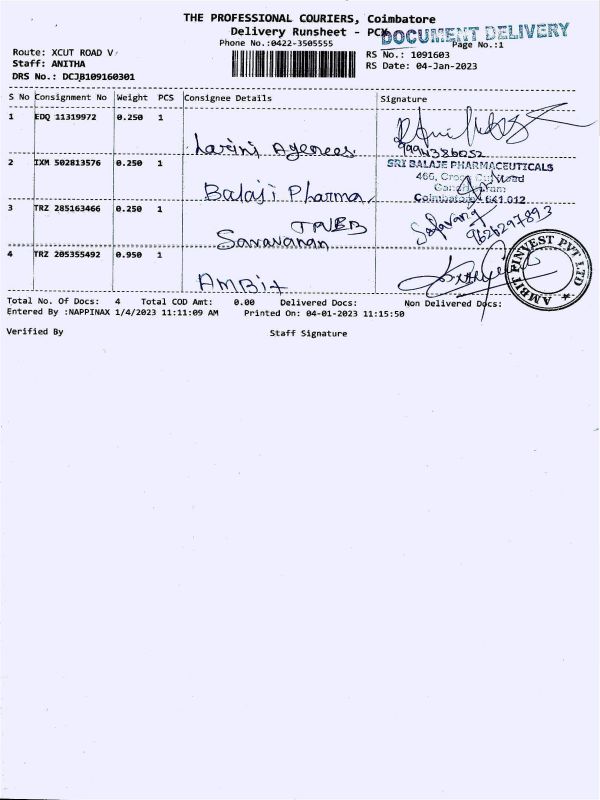 THE PROFESSIONAL COURIERS, Coimbatore
Delivery Runsheet - PCX
DOCUMENT DELIVERY
Phone No.:0422-3505555
Page No.:1
Route: XCUT ROAD V
Staff: ANITHA
DRS No.: DCJB109160301
RS No.: 1091603
RS Date: 04-Jan-2023
S No Consignment No Weight PCS Consignee Details Signature
1 EDQ 11319972 0.250 1
Larini Agencees
9994386052
2 IXM 502813576 0.250 1
Balaji Pharma
SRI BALAJE PHARMACEUTICALS
466, Cross Cut Road
Coimbatore 641 012
3 TRZ 285163466 0.250 1
Saravanan
9626297893
4 TRZ 205355492 0.950 1
AMBit
AMBIT FINVEST PVT LTD
Total No. Of Docs: 4 Total COD Amt: 0.00 Delivered Docs: Non Delivered Docs:
Entered By :NAPPINAX 1/4/2023 11:11:09 AM Printed On: 04-01-2023 11:15:50
Verified By Staff Signature